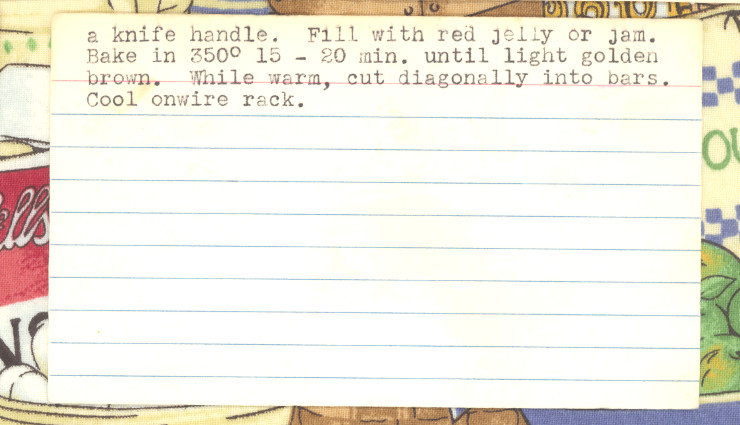 a knife handle. Fill with red jelly or jam.
Bake in 350° 15 - 20 min. until light golden
brown. While warm, cut diagonally into bars.
Cool onwire rack.